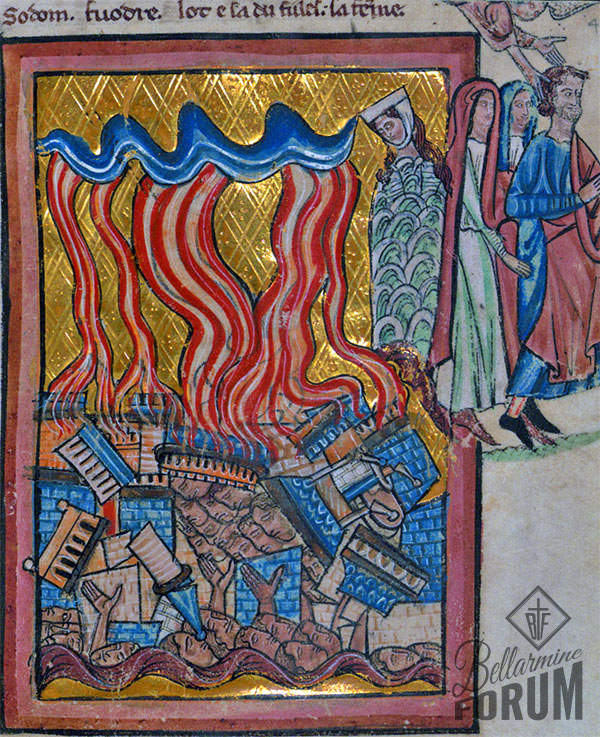 Sodom. fuodre. lot e sa du filles. la feme.
4
BF
Bellarmine
FORUM